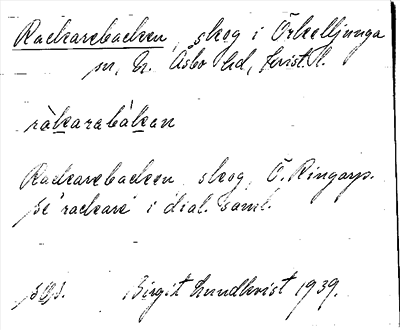 Rackarebacken, skog i Örkelljunga
sn, N. Åsbo hd, Krist. l.
ràkarabàkan
Rackarebacken, skog, Ö. Ringarp.
se 'rackare' i dial. saml.
Birgit Lundkvist 1939.